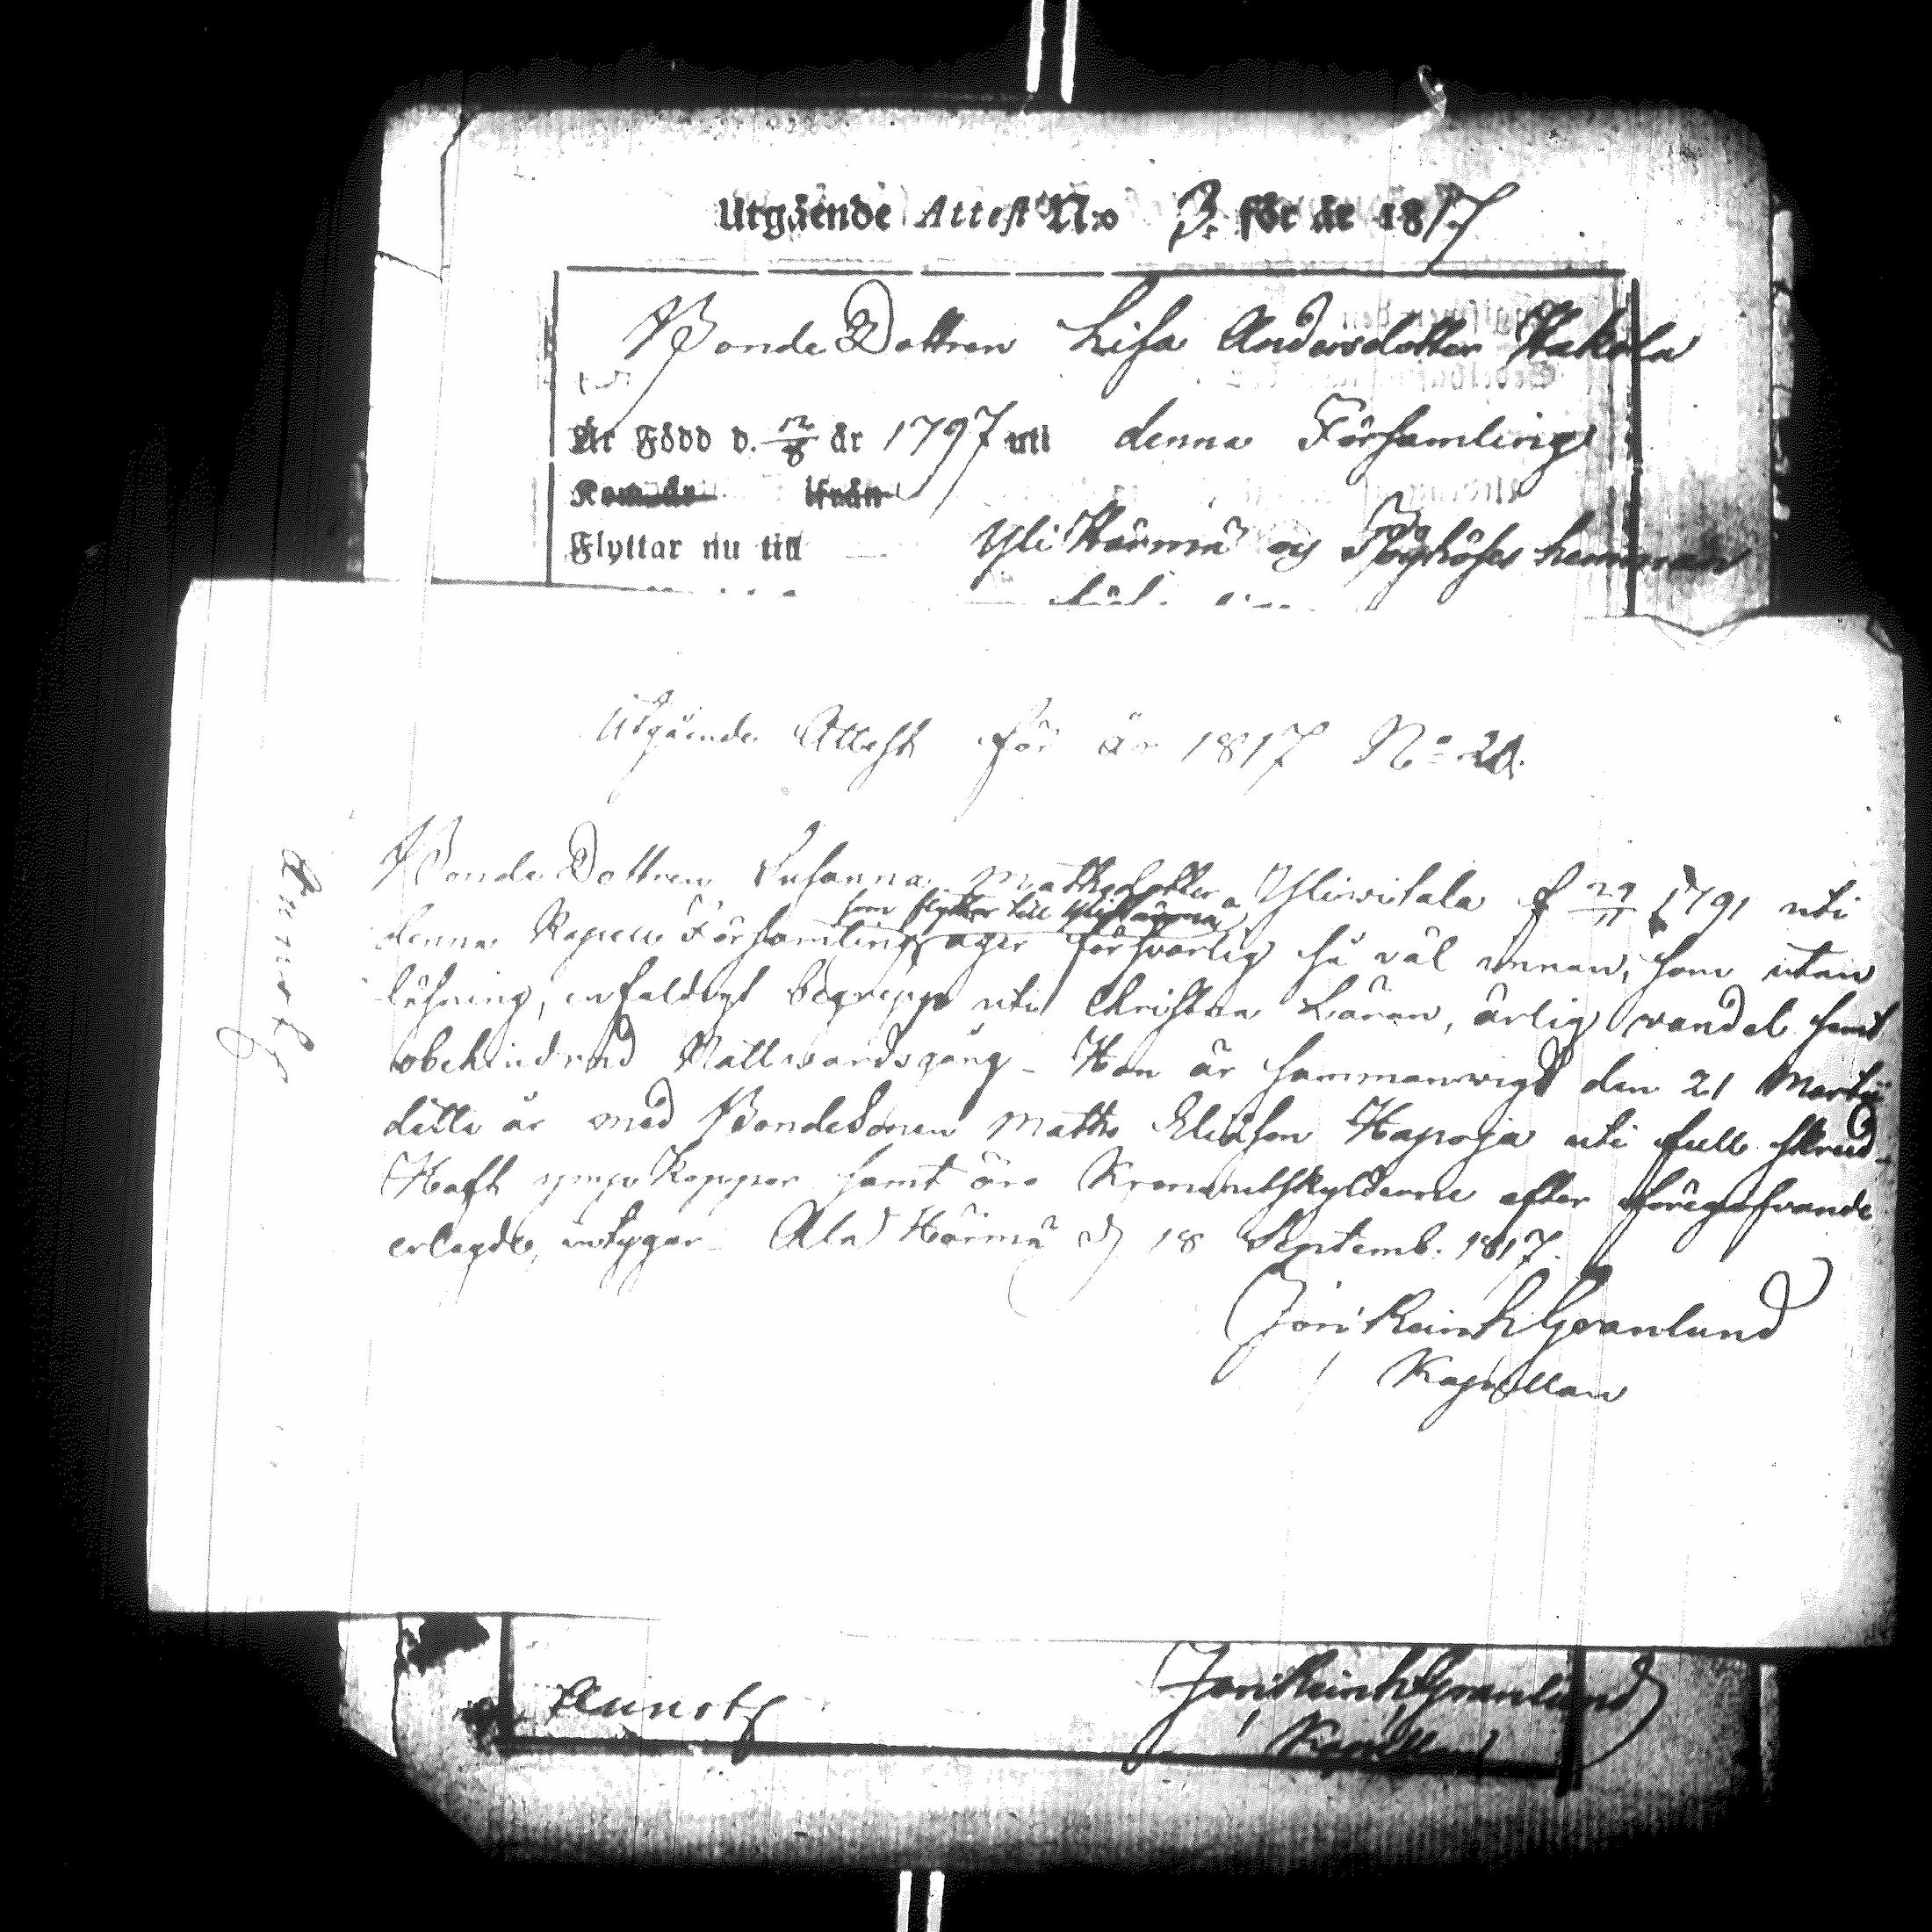 Utgående Attest N:o 3. för år 1817
Bonde Dottren Lisa Andersdotter Hakola
Är Född d. 12/8 år 1797 uti denna Församling
Kom år ifrån
Flyttar nu till Yli Härmä och hemman
Utgående Attest för år 1817 No 20.
Bonde Dottren Susanna Mattsdotter Yliwitala f 29/11 1791 uti
som flyttar till Yli Härmä
denna Kapell Församling, äger försvarlig så väl innan, som utan
läsning, enfaldigt begrepp uti Christna Läran, ärlig vandel samt
obehindrad Nattvardsgång - Hon är sammanvigd den 21 Martii
detta år med BondeSonen Matts Eliasson Hapoja uti full skrud -
Haft Koppor samt äro Kronoutskylderne efter föregifvande
erlagde, intygar - Ala Härmä d 18 Septemb. 1817.
Joh Reinh Granlund
Kapellan
Aunesty
Joh Reinh Granlund
Kapellan